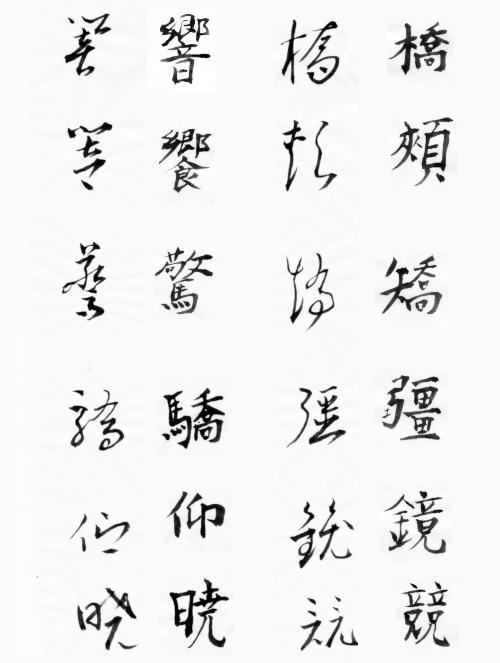 橋頰矯疆鏡競
橋頰矯疆鏡競
響饗驚驕仰暁
響饗驚驕仰暁